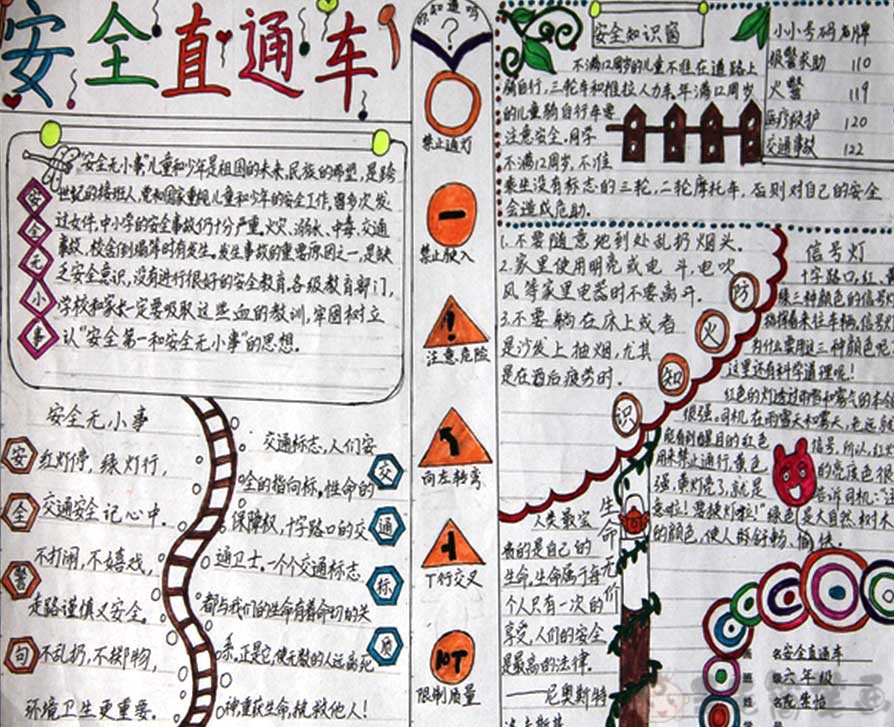 安全直通车
"安全无小事"儿童和少年是祖国的未来,民族的希望,是跨
世纪的接班人,党和国家重视儿童和少年的安全工作,曾多次发
过文件,中小学的安全事故仍十分严重。火灾、溺水、中毒、交通
事故、校舍倒塌等时有发生。发生事故的重要原因之一,是缺
乏安全意识,没有进行很好的安全教育。各级教育部门,
学校和家长一定要吸取这些血的教训,牢固树立
认"安全第一和安全无小事"的思想。
安全无小事
安全无小事
红灯停,绿灯行,
交通安全记心中。
不打闹,不嬉戏,
走路谨慎又安全。
不乱扔,不掷物,
环境卫生更重要。
安全警句
交通标志,人们安
全的指向标。性命的
保障权,十字路口的交
通卫士。一个个交通标志
都与我们的生命有着命切的关
系。正是它,使无数的人远离死
神,重获生命,挽救他人!
交通标质
你知道吗
?
禁止通灯
禁止驶入
注意危险
向左转弯
T行交叉
10T
限制质量
安全知识窗
不满12周岁的儿童不准在道路上
骑自行,三轮车和推拉人力车。年满12周岁
的儿童骑自行车要
注意安全。同学
不满12周岁,不准
乘坐没有标志的三轮,二轮摩托车,否则对自己的安全
会造成危助。
小小号码老牌
报警求助 110
火警 119
医疗救护 120
交通事故 122
1.不要随意地到处乱扔烟头。
2.家里使用明亮或电 斗,电吹
风等家里电器时不要离开。
3.不要躺在床上或者
是沙发上抽烟,尤其
是在酒后疲劳时。
防火知识
信号灯
十字路口,红、
绿三种颜色的信号
指挥着来往车辆,信号
为什么要用这三种颜色呢?
这里还有科学道理呢!
红色的灯透过雨雪和雾气的本
很强。司机在雨雪天和雾天,老远
能看到醒目的红色
信号,所以,红
用来禁止通行。黄色
的亮度色很
强,黄灯亮了,就是
告诉司机:注
意啦!要换灯啦!"绿色是大自然树木
的颜色,使人感舒畅、愉快。
生命无价
人类最宝
贵的是自己的
生命,生命属于每
个人只有一次的
享受,人们的安全
是最高的法律。
——尼奥斯特
名安全直通车
班六年级